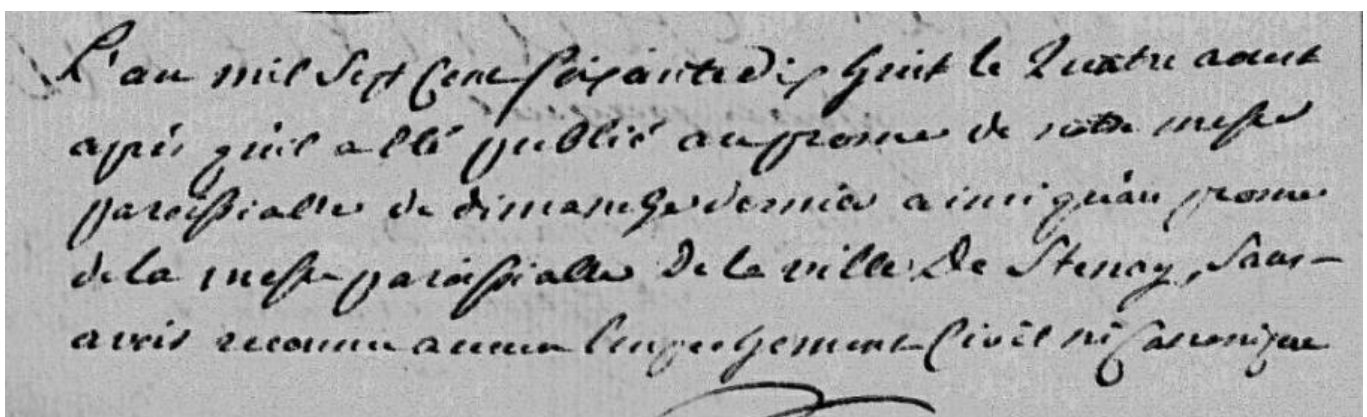 L'an mil Sept Cent soixante dix huit le Quatre aout
après qu'il a été publié au prone de notre messe
paroissialle de dimanche dernier ainsi qu'au prone
de la messe paroissialle De la ville De Stenay, Sans
avoir reconnu aucun Empechement Civil ni Canonique